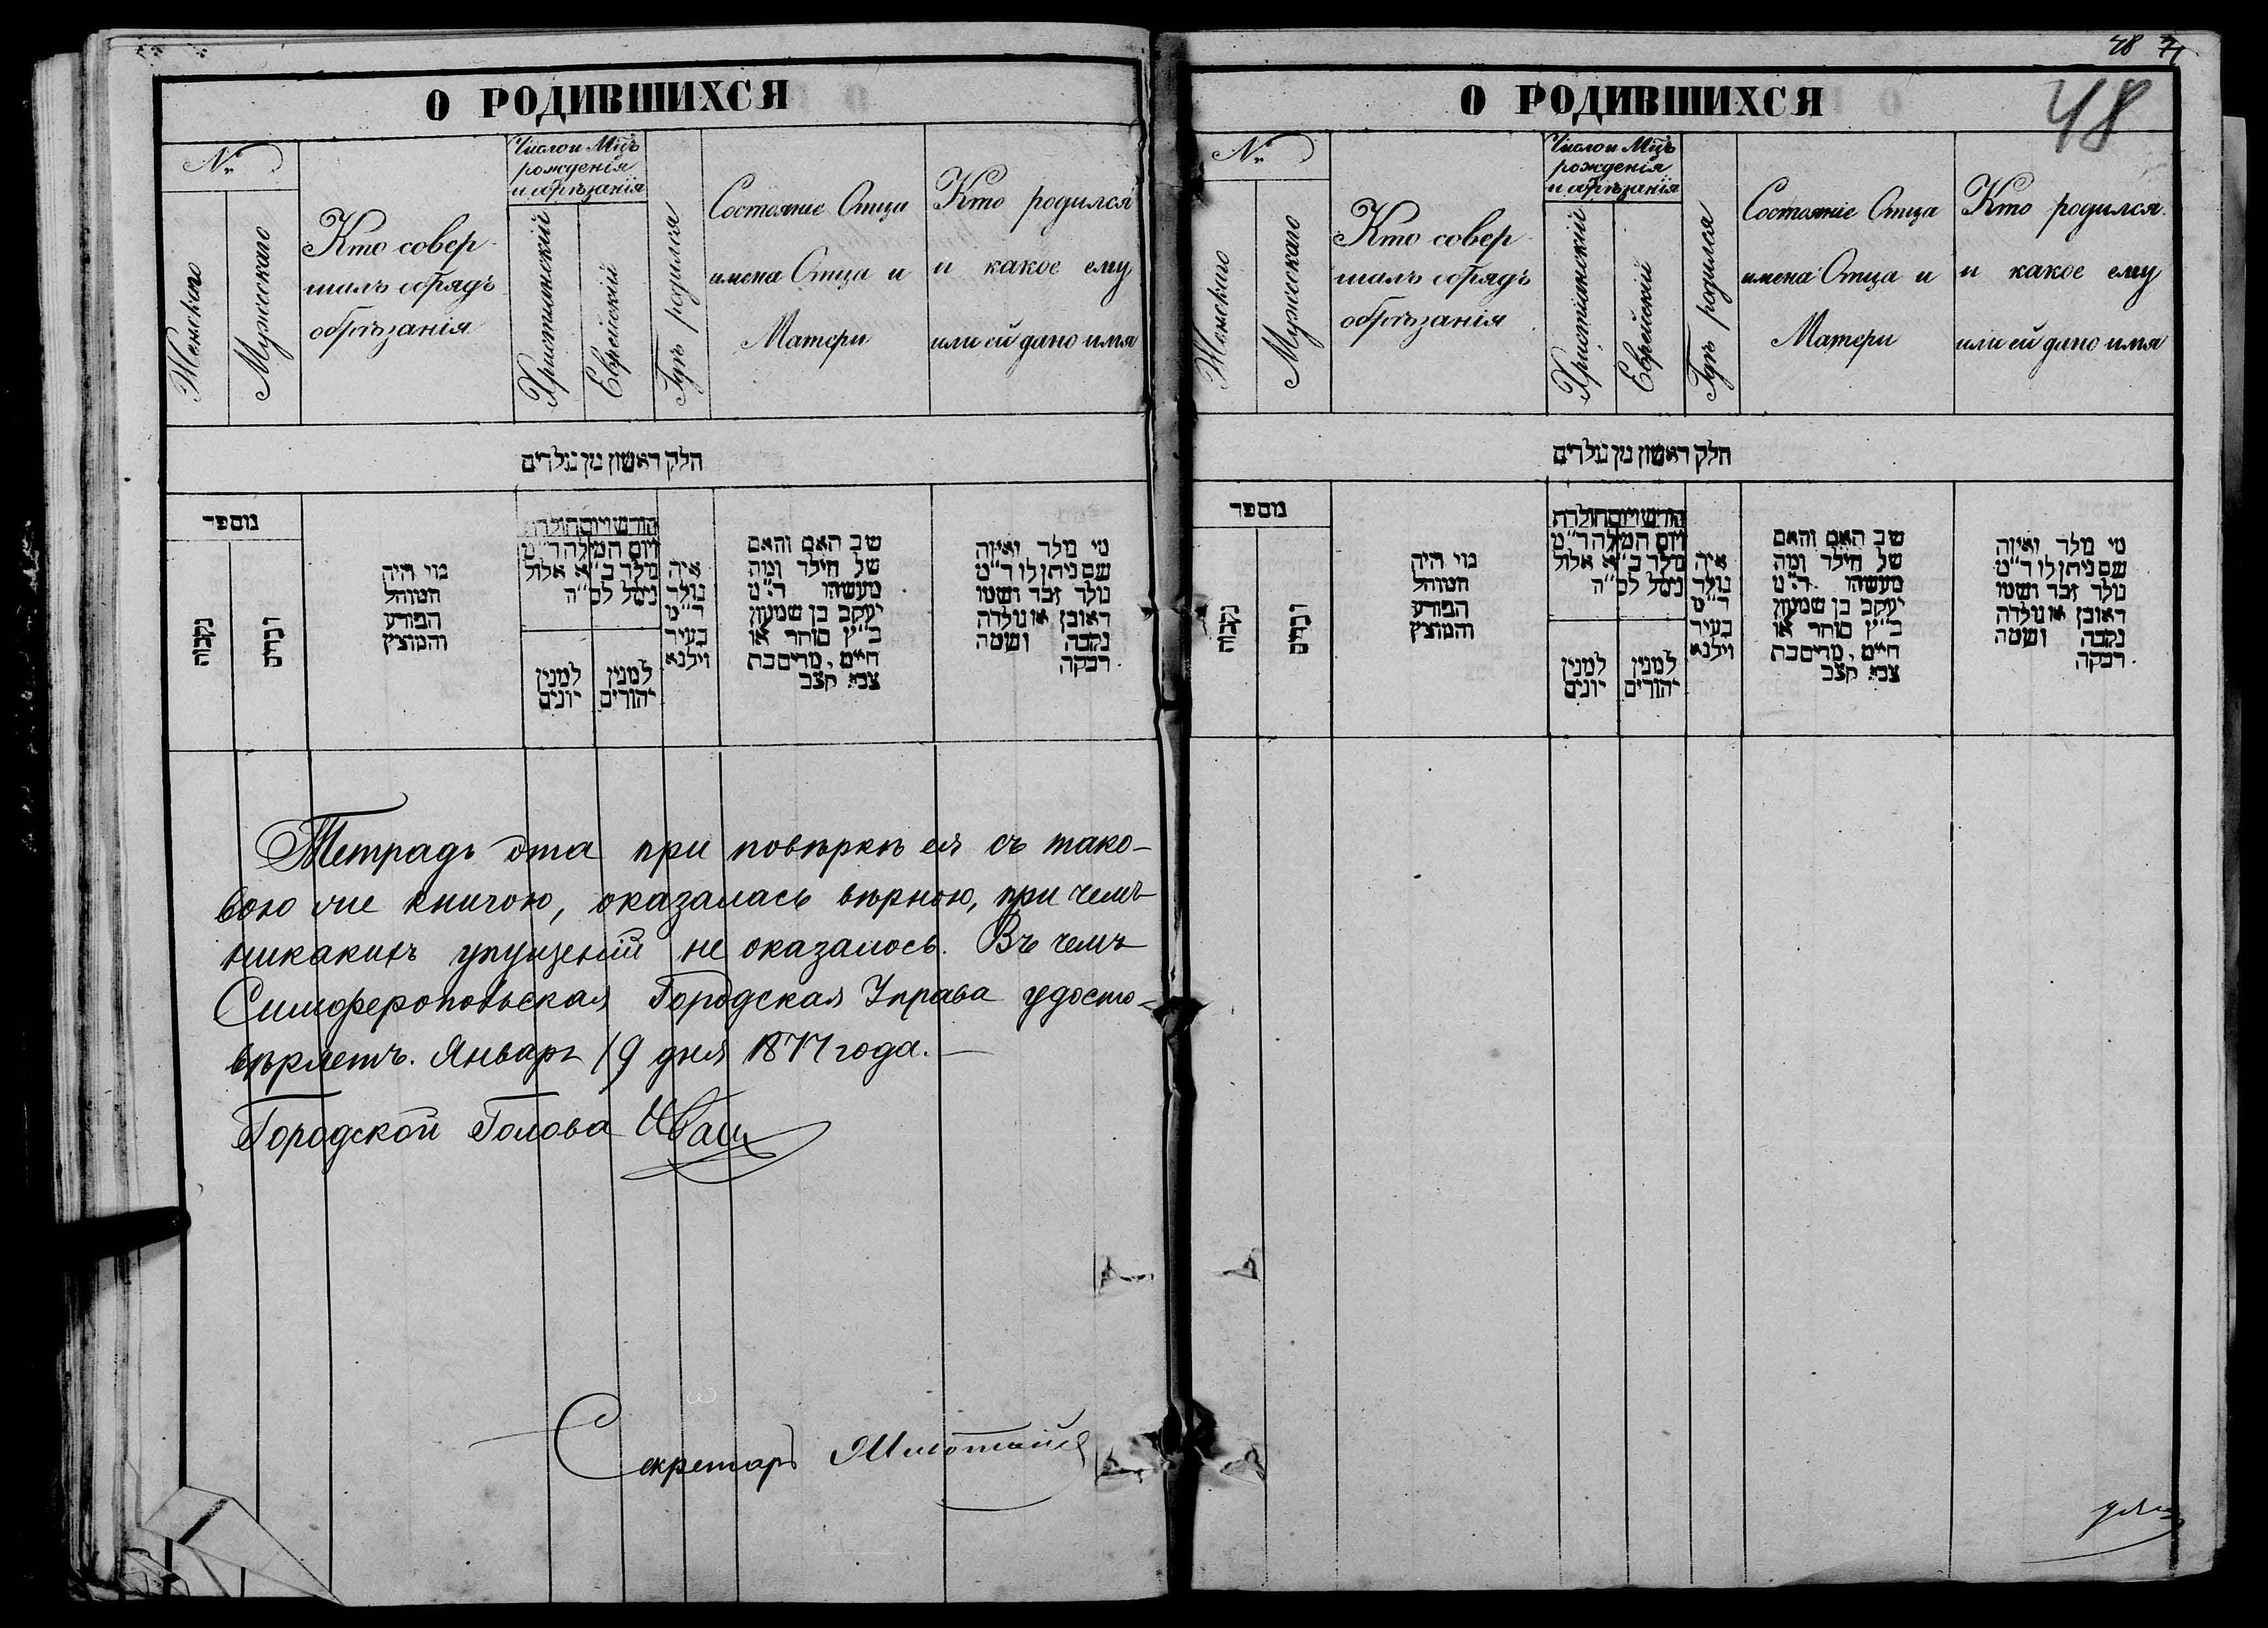 О РОДИВШИХСЯ
№
Женского
Мужескаго
Кто совер-
шалъ обрядъ
обрѣзанія
Число и Мцъ
рожденія
и обрѣзанія
Христіанскій
Еврейскій
Гдѣ родился
Состояніе Отца
имена Отца и
Матери
Кто родился
и какое ему
или ей дано имя
חלק ראשון מן נולדים
מספר
נקבות
זכרים
מי היה
המוהל
הפורע
והמוצץ
חודש ויום תולדת
ויום המילה ד״מ
נולד ב״א אלול
נימל לס״ה
למנין
יונים
למנין
יהודים
איה
נולד
ד״מ
בעיר
וילנא
שב האם והאם
של הילד ומה
מעשהו ד״מ
יעקב בן שמעון
כ״ץ סוחר או
חיים, מרים בת
צבי קצב
מי נולד ואיזה
שם ניתן לו ד״מ
נולד זכר ושמו
ראובן או נולדה
נקבה ושמה
רבקה
Тетрадь эта при повѣркѣ ея съ тако-
вою же книгою, оказалась вѣрною, при чемъ
никакихъ упущеній не оказалось. Въ чемъ
Симферопольская Городская Управа удосто-
вѣряетъ. Января 19 дня 1877 года.
Городской Голова
Секретарь
48 71
48
О РОДИВШИХСЯ
№
Женского
Мужескаго
Кто совер-
шалъ обрядъ
обрѣзанія
Число и Мцъ
рожденія
и обрѣзанія
Христіанскій
Еврейскій
Гдѣ родился
Состояніе Отца
имена Отца и
Матери
Кто родился
и какое ему
или ей дано имя
חלק ראשון מן נולדים
מספר
נקבות
זכרים
מי היה
המוהל
הפורע
והמוצץ
חודש ויום תולדת
ויום המילה ד״מ
נולד ב״א אלול
נימל לס״ה
למנין
יונים
למנין
יהודים
איה
נולד
ד״מ
בעיר
וילנא
שב האם והאם
של הילד ומה
מעשהו ד״מ
יעקב בן שמעון
כ״ץ סוחר או
חיים, מרים בת
צבי קצב
מי נולד ואיזה
שם ניתן לו ד״מ
נולד זכר ושמו
ראובן או נולדה
נקבה ושמה
רבקה